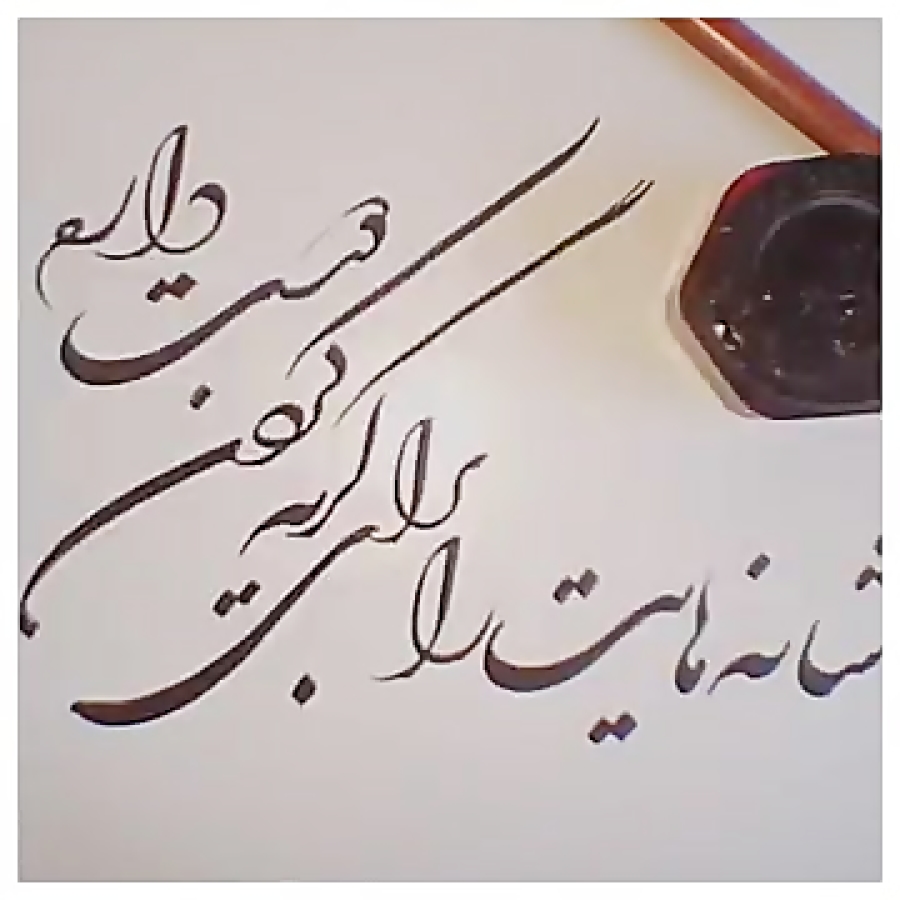 شانه هایت را
برای گریه کردن
دوست دارم